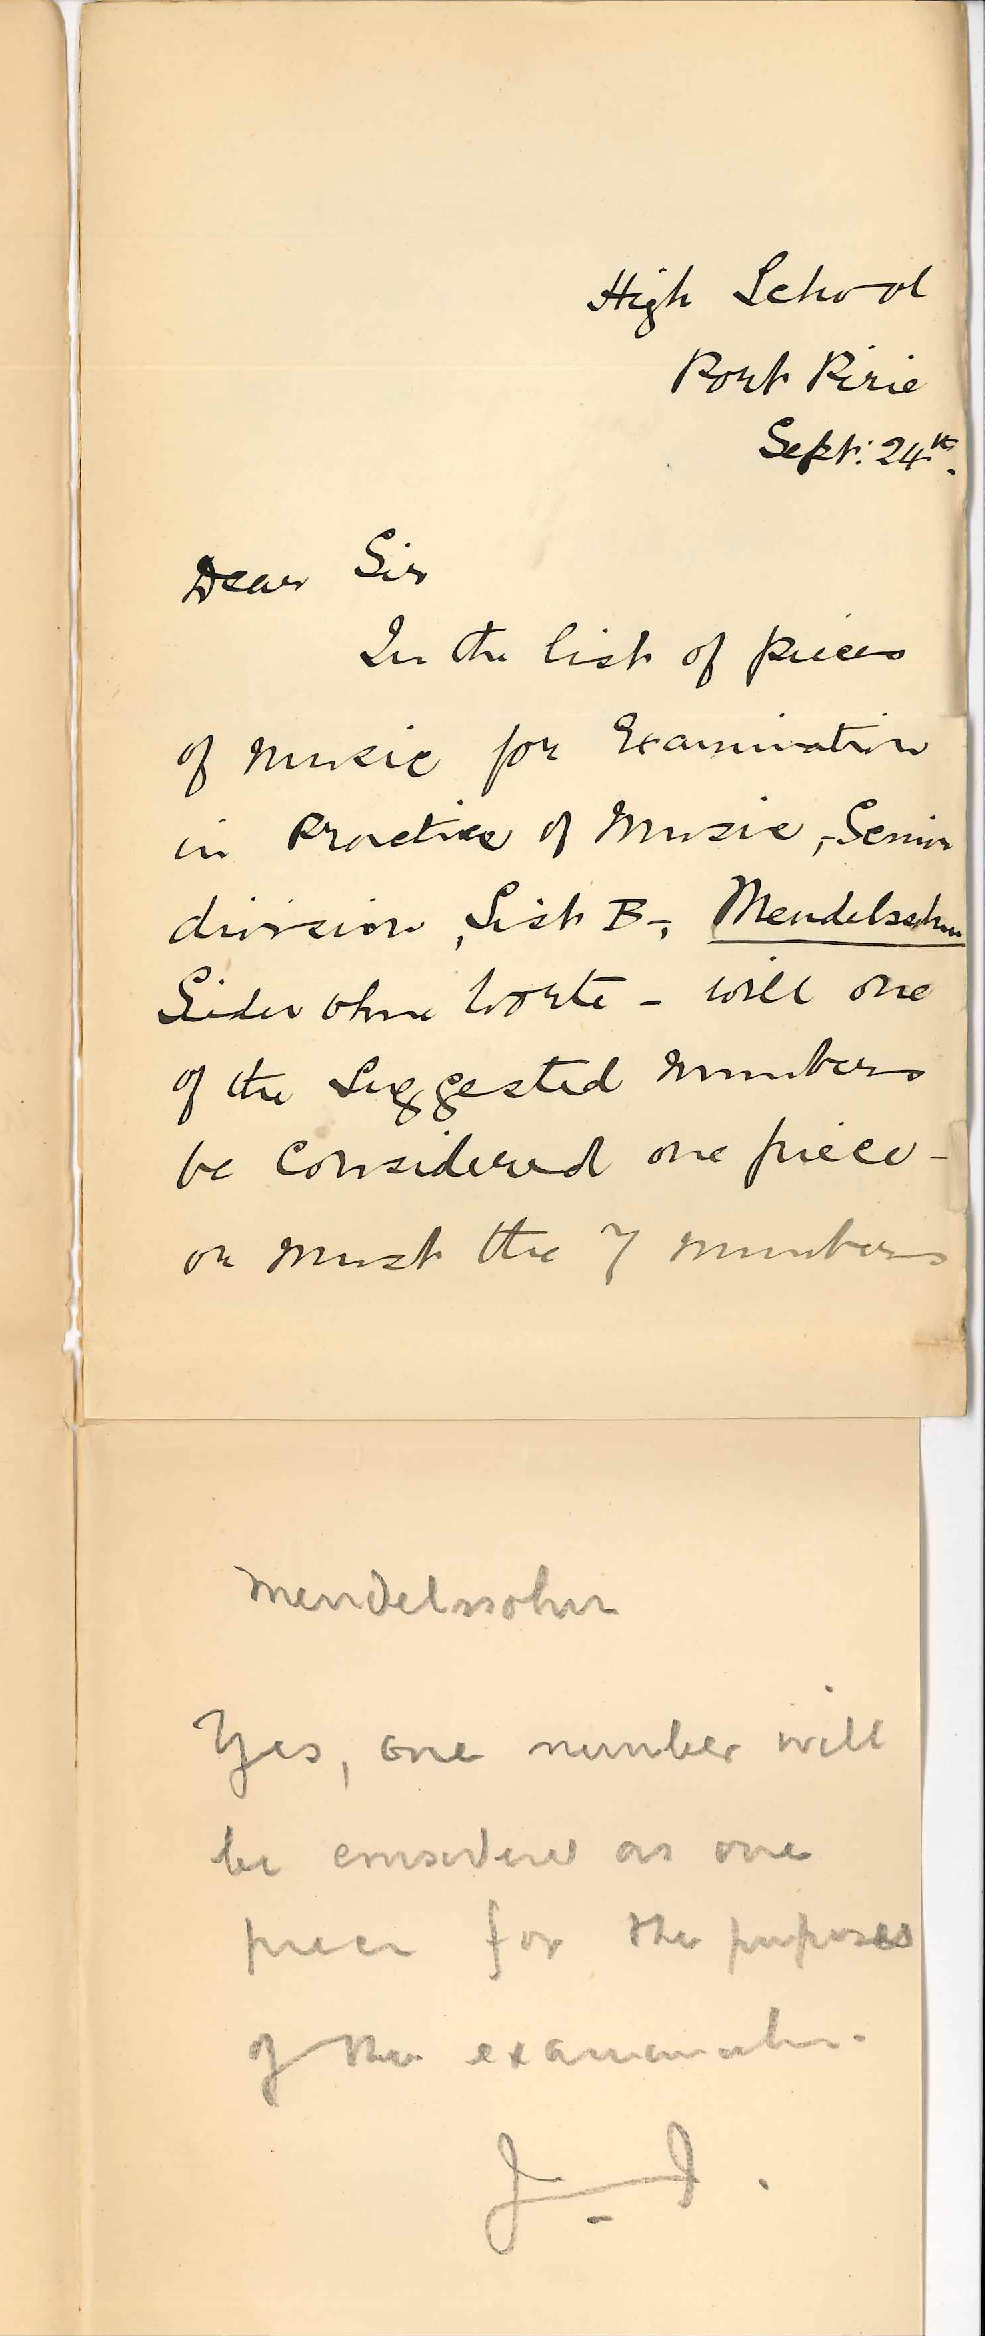 High School
Port Pirie
Sept: 24th.
Dear Sir
In the list of pieces
of music for Examination
in Practice of Music, Senior
division, List B-, Mendelssohn
Lieder ohne Worte - will one
of the suggested numbers
be considered one piece -
or must the 7 numbers
Mendelssohn
Yes, one number will
be considered as one
piece for the purposes
of the examination.